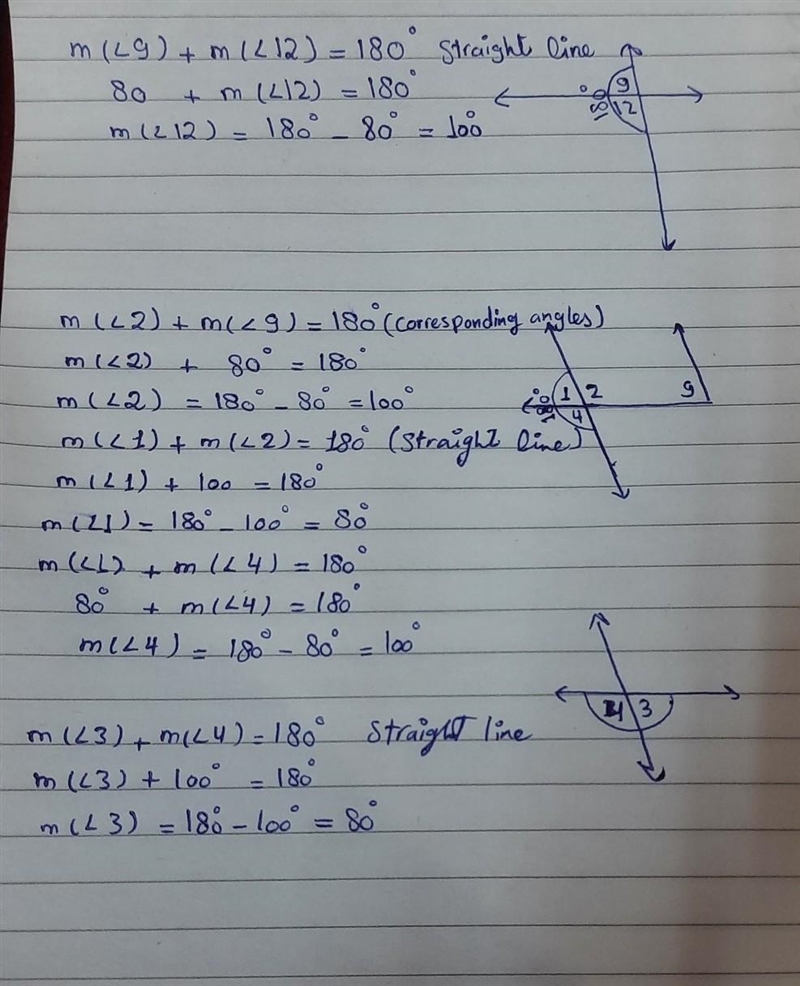 m(∠9) + m(∠12) = 180° Straight line
80 + m(∠12) = 180°
m(∠12) = 180° - 80° = 100°
9
180°
12
m(∠2) + m(∠9) = 180° (Corresponding angles)
m(∠2) + 80° = 180°
m(∠2) = 180° - 80° = 100°
1 2 9
180°
4
m(∠1) + m(∠2) = 180° (Straight line)
m(∠1) + 100 = 180°
m(∠1) = 180° - 100° = 80°
m(∠1) + m(∠4) = 180°
80° + m(∠4) = 180°
m(∠4) = 180° - 80° = 100°
4 3
m(∠3) + m(∠4) = 180° Straight line
m(∠3) + 100° = 180°
m(∠3) = 180° - 100° = 80°